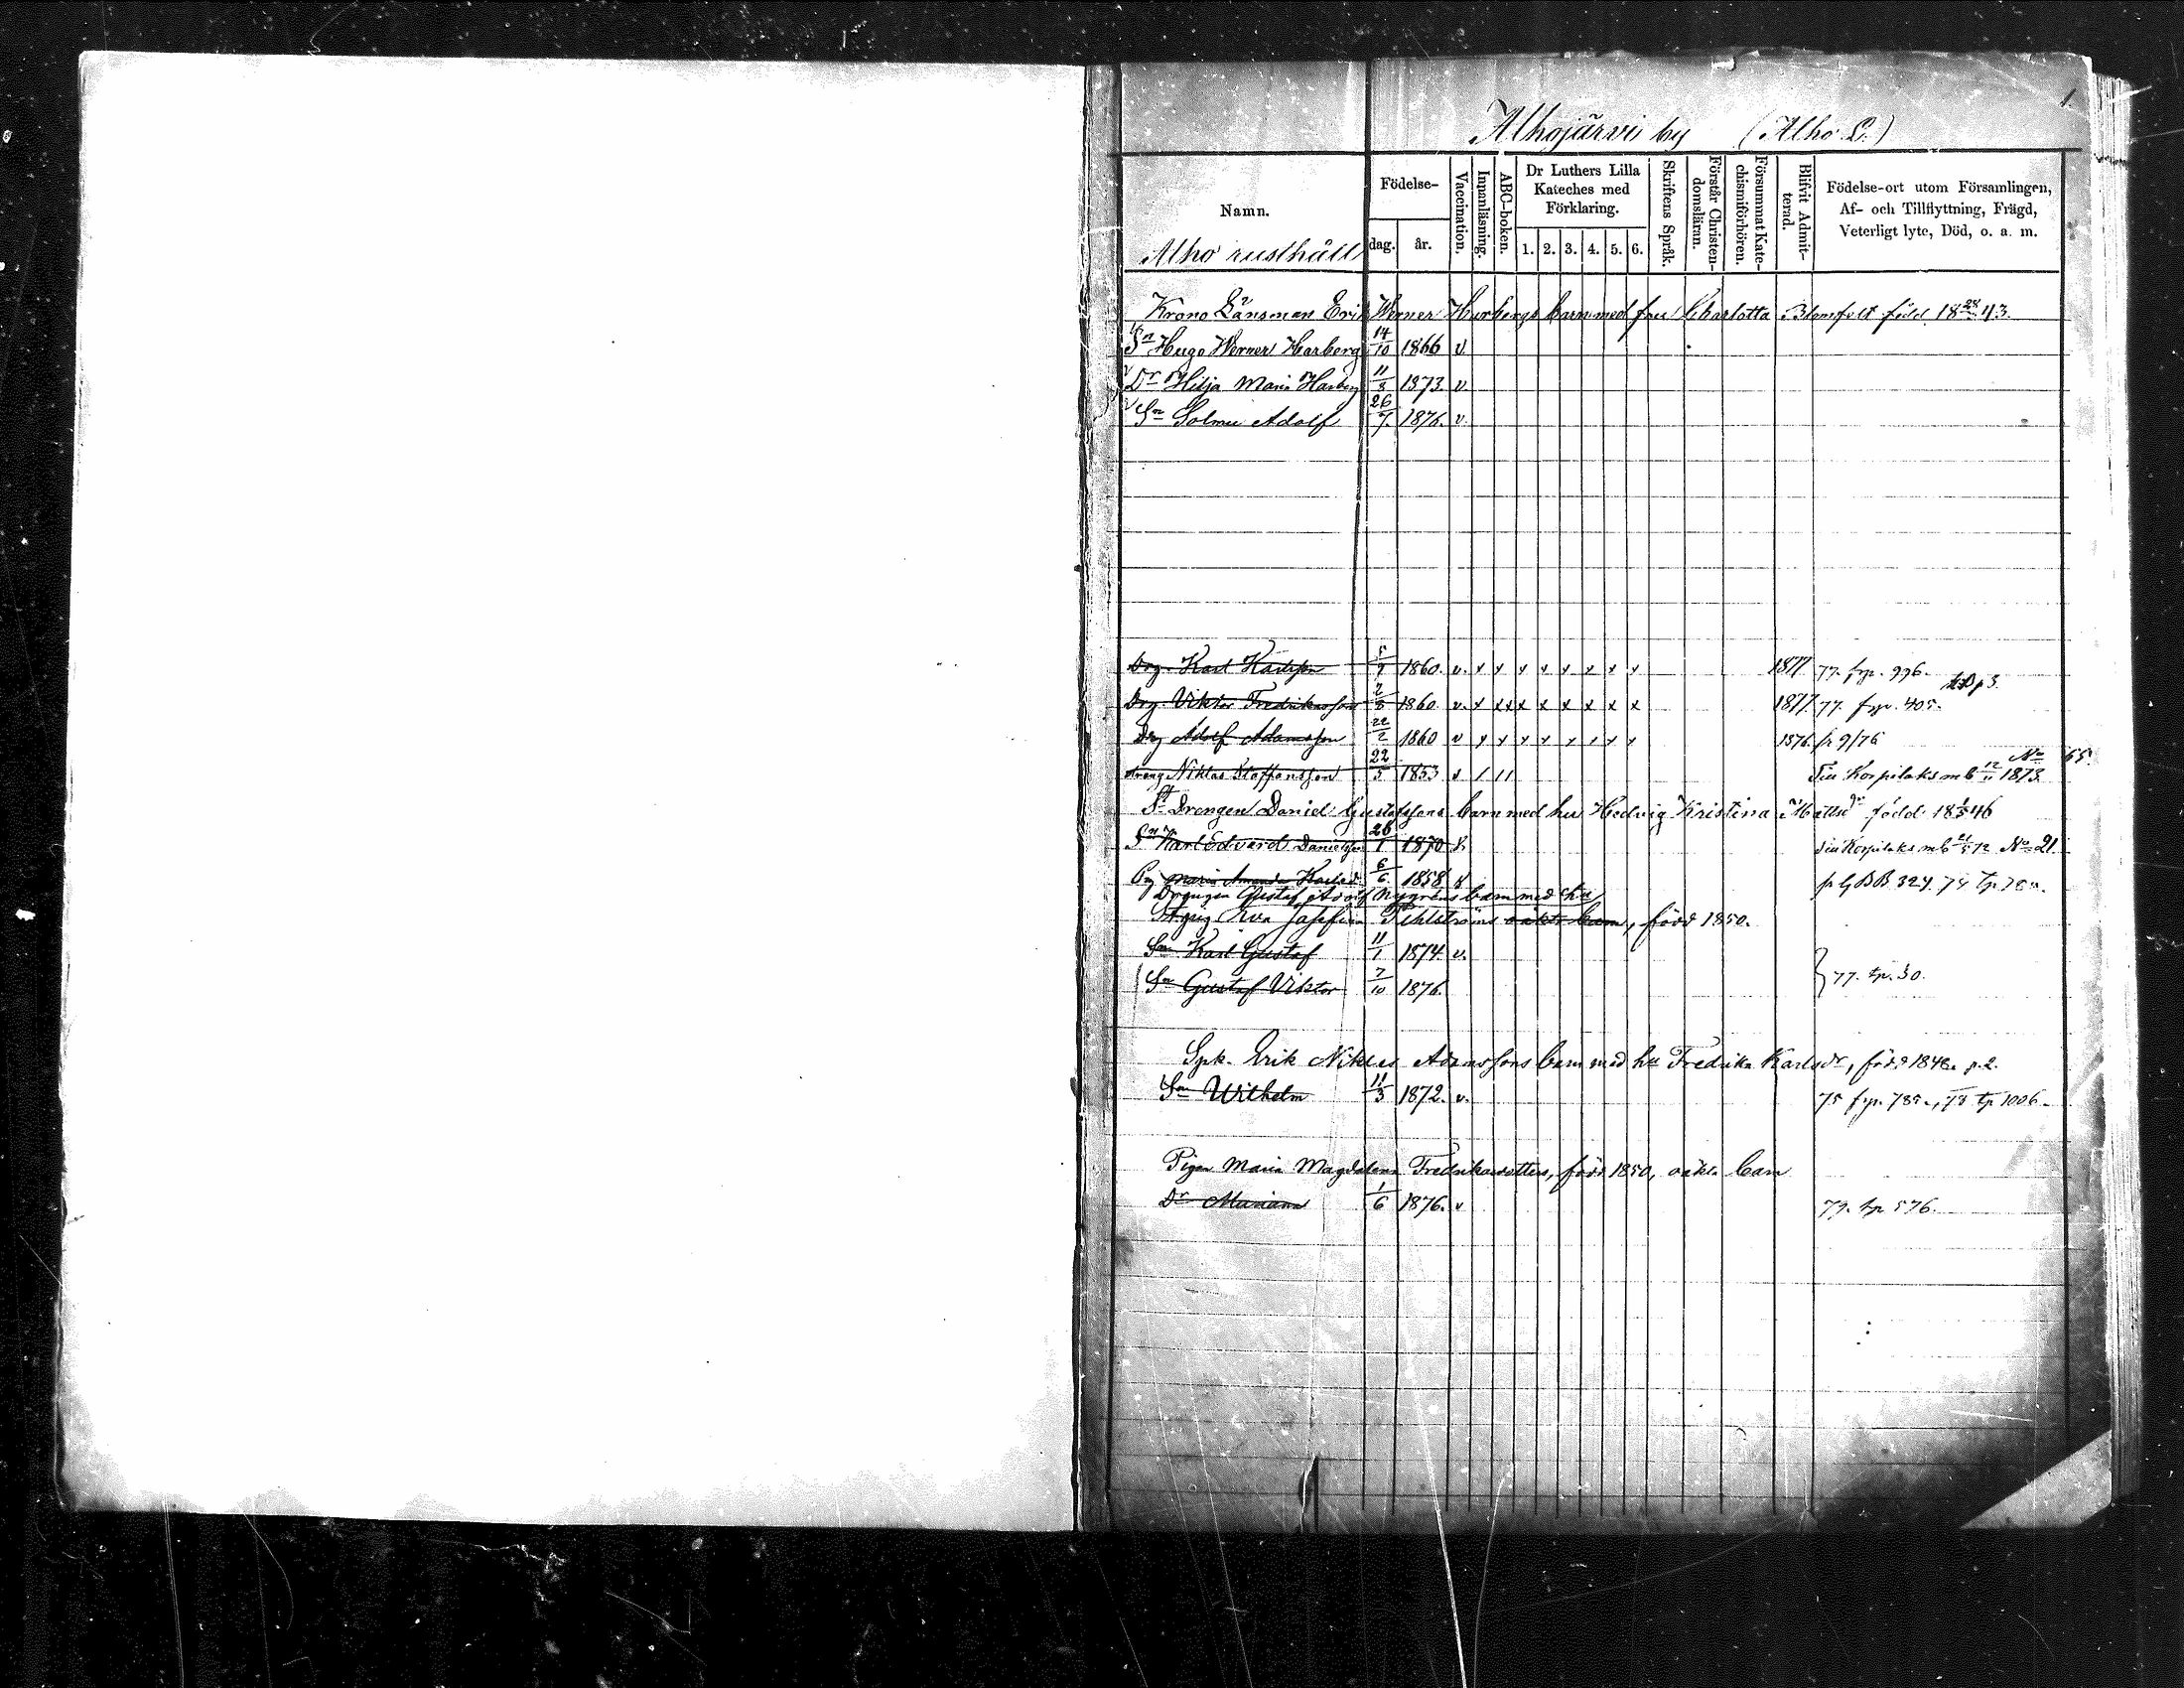 1.
Alhojärvi by (Alho L.)
Namn. Födelse- dag. år. Vaccination. Innanläsning. ABC-boken. Dr Luthers Lilla Kateches med Förklaring. 1. 2. 3. 4. 5. 6. Skriftens Språk. Förstår Christen-domsläran. Försummat Kate-chismiförhören. Blifvit Admit-terad. Födelse-ort utom Församlingen, Af- och Tillflyttning, Frägd, Veterligt lyte, Död, o. a. m.
Alho rusthåll
Krono Länsman Erik Werner Harbergs barn med fru Charlotta född 18 43.
Sn Hugo Werner Harberg 14/10 1866 v.
v Dr Hilja Maria Harberg 11/8 1873. v
v Sn Solmu Adolf 26/7. 1876. v.
Drg. Karl Karlsson 5/9 1860. v. x x x x x x x x 1877 77. frp. 996.
Drg. Viktor Fredriksson 2/8 1860. v. x xx x x x x x x 1877 77. frp. 405. p 3.
Drg Adolf Adamsson 22/2 1860 v x x x x x x x x 1876. fr 9/76
dreng Niklas Staffansson 22/5 1853 v / // Till Korpilaks mb 12/11 1873. No 65.
St Drengen Daniel Gustafssons barn med hu Hedvig Kristina Mattsdr född 18 1/5 46
Sn Karl Edvard Danielsson 26/1 1870 v. till Korpilaks mb No 21.
Pig Maria Amanda Karlsd 6/6. 1858 v
Drengen Gustaf Adolf Nygrens barn med hu
Eva Josefina Fehlströms oäkta barn, född 1850.
Sn Karl Gustaf 11/1 1874 v.
Sn Gustaf Viktor 7/10 1876. } 77. tp. 30.
Spk. Erik Niklas Adamssons barn med hu Fredrika Karlsdr, född 1848. p. 2.
Sn Wilhelm 11/3 1872. v. 75 frp. 785., 78 tp 1006.
Pigan Maria Magdalena Fredriksdotters, född 1850, oäkta barn
Dr Mariana 1/6 1876. v 79. tp 576.